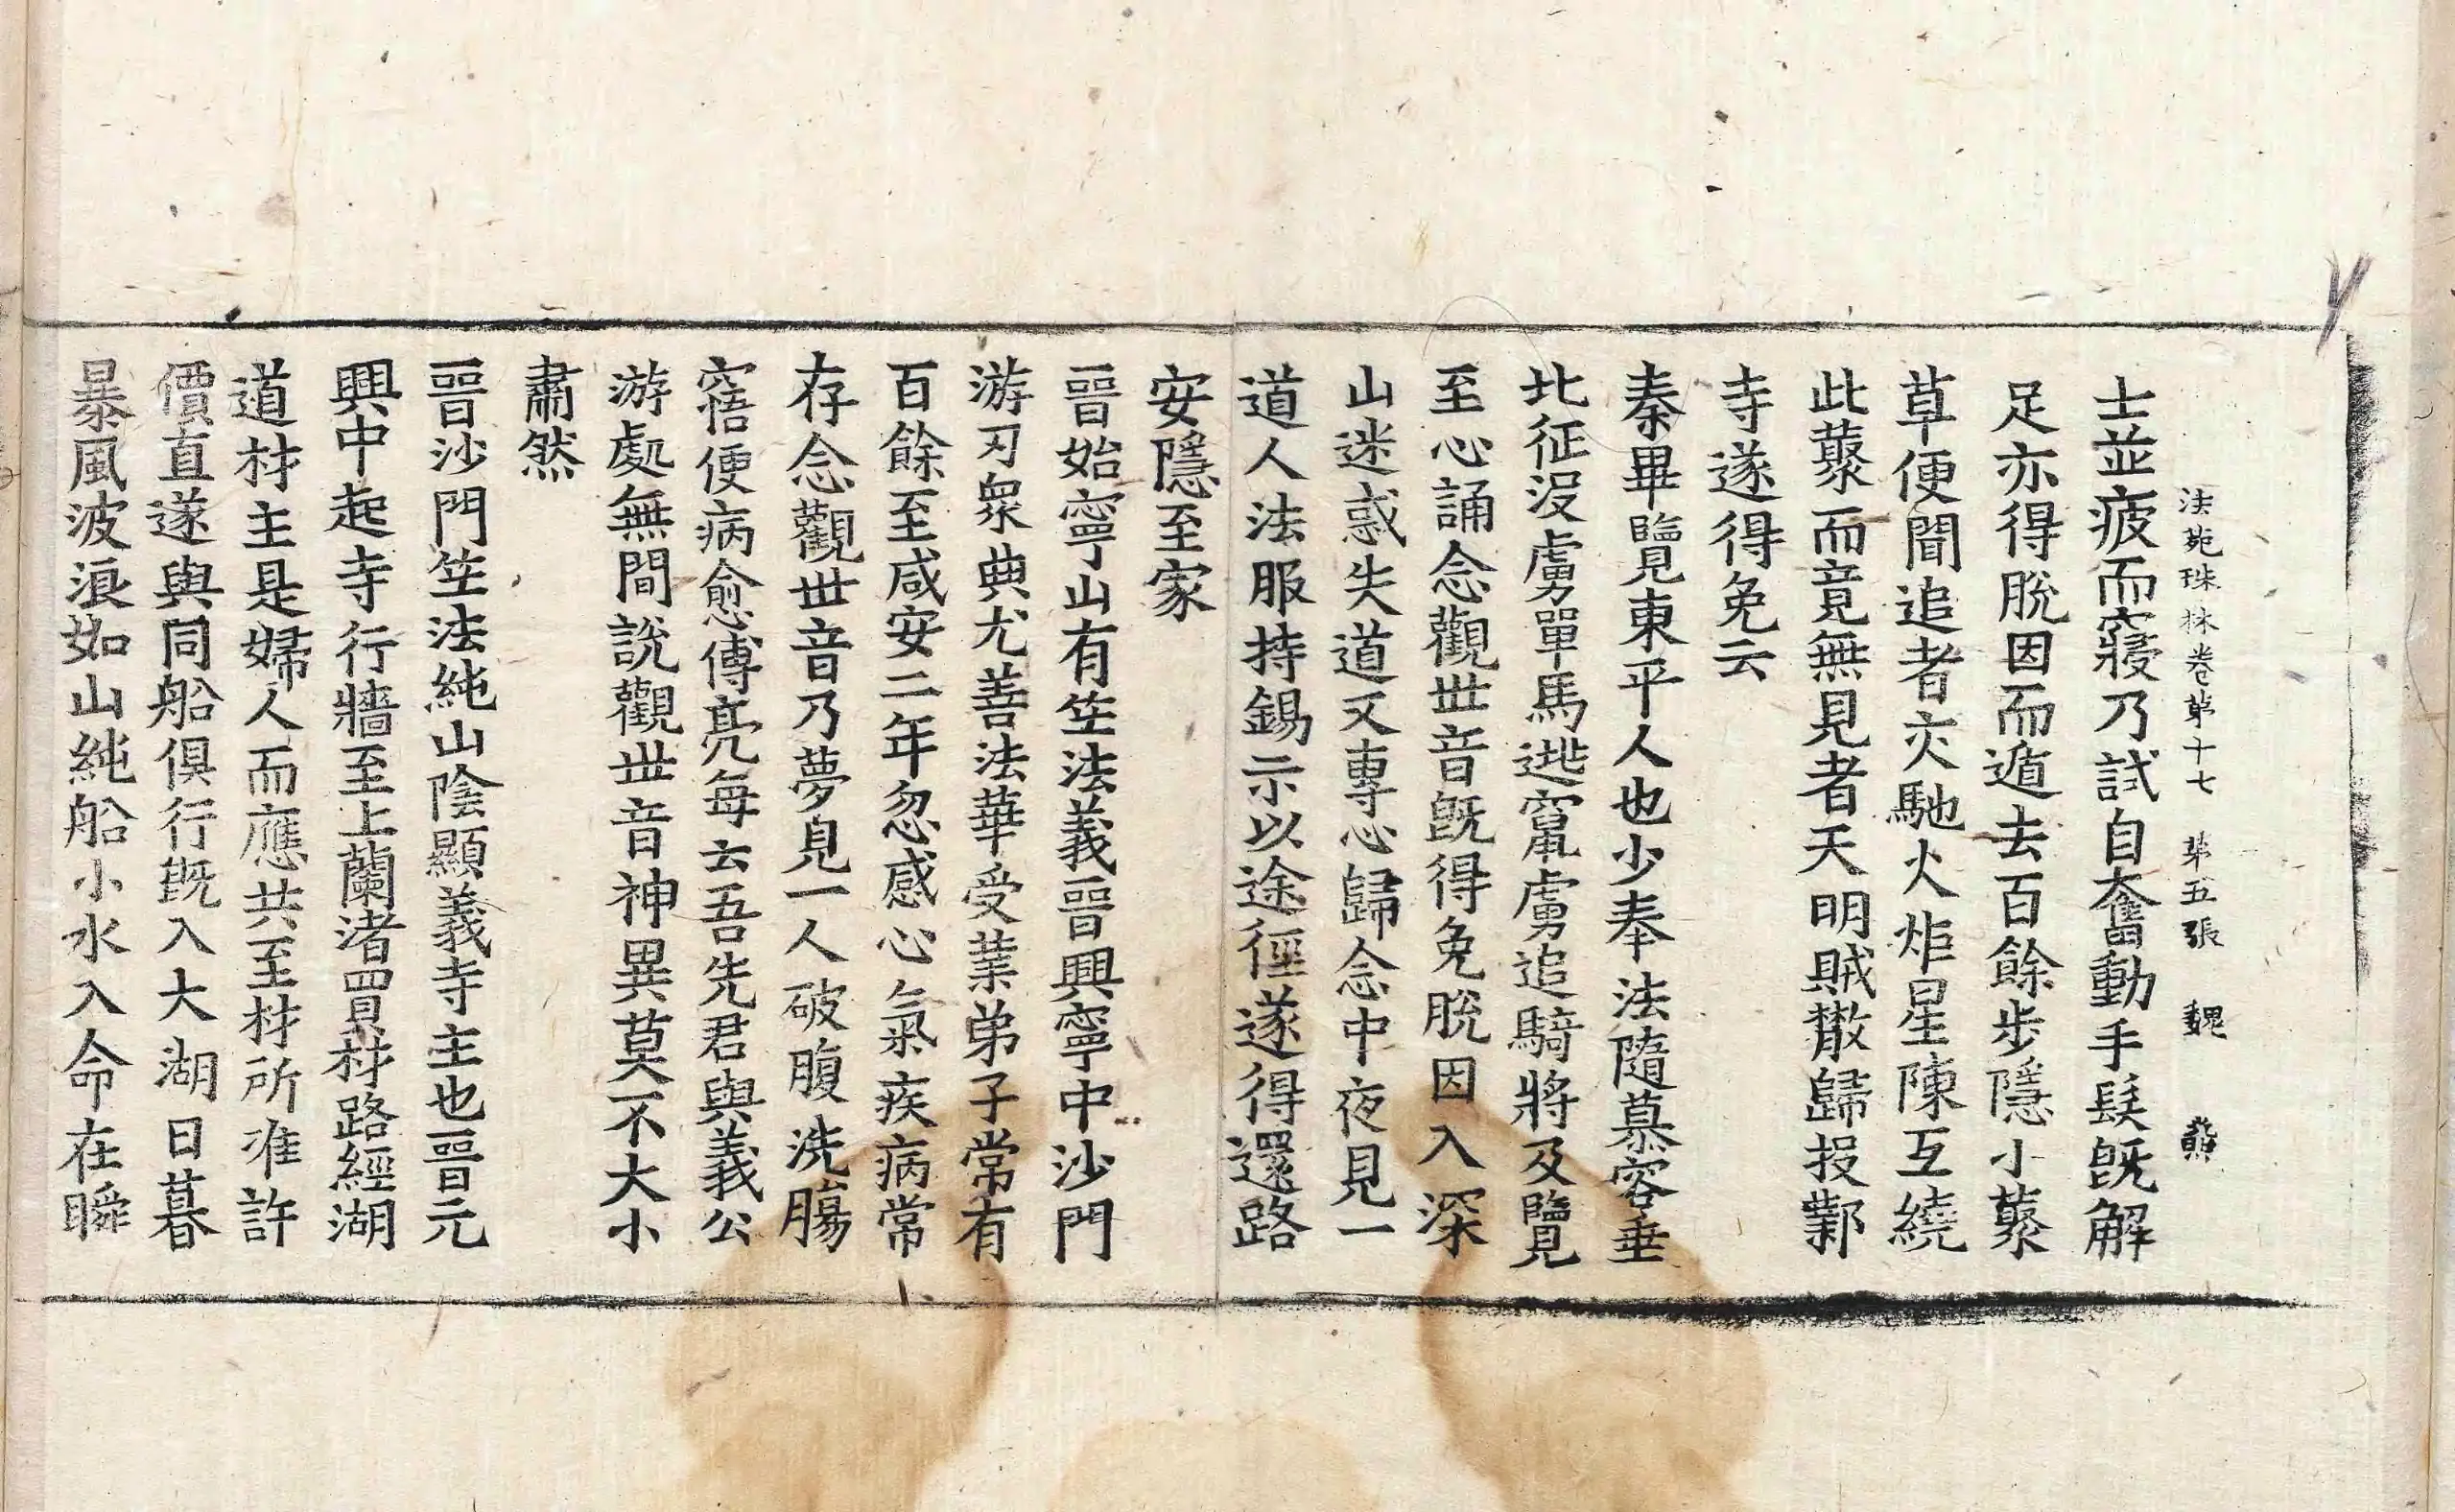 法苑珠林卷第十七 第五張 魏
士並疲而寢乃試自奮動手髮旣解
足亦得脫因而遁去百餘步隱小藂
草便聞追者交馳火炬星陳互繞
此藂而竟無見者天明賊散歸投鄴
寺遂得免云
秦畢覽東平人也少奉法隨慕容垂
北征没虜單馬逃竄虜追騎將及覽
至心誦念觀世音旣得免脫因入深
山迷惑失道又專心歸念中夜見一
道人法服持錫示以途徑遂得還路
安隱至家
晉始寧山有竺法義晉興寧中沙門
游刃衆典尤善法華受業弟子常有
百餘至咸安二年忽感心氣疾病常
存念觀世音乃夢見一人破腹洗腸
寤便病愈傅亮每云吾先君與義公
游處無間說觀世音神異莫不大小
肅然
晉沙門竺法純山陰顯義寺主也晉元
興中起寺行牆至上蘭渚買材路經湖
道材主是婦人而應共至材所准許
價直遂與同船俱行旣入大湖日暮
暴風波浪如山純船小水入命在瞬